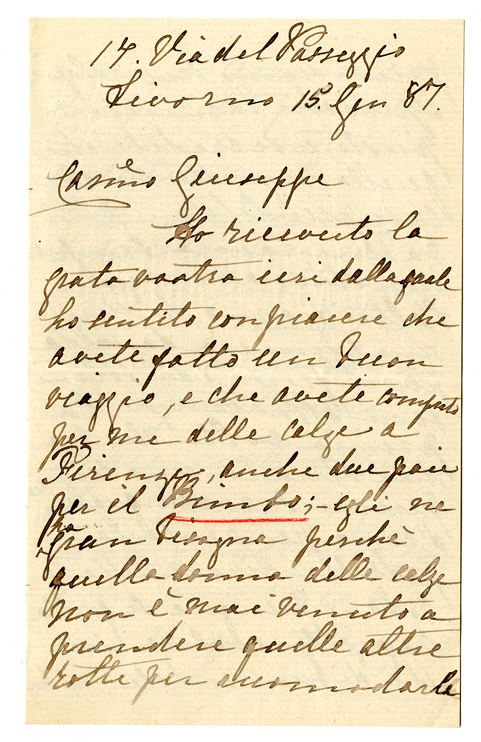 14. Via del Passeggio
Livorno 15. Gen 87.
Carmo Giuseppe
Ho ricevuto la
grata vostra ieri dalla quale
ho sentito con piacere che
avete fatto un buon
viaggio, e che avete comprato
per me delle calze a
Firenze, anche due paia
per il Bimbo; - egli ne
ha
gran bisogna perchè
quella donna delle calze
non è mai venuto a
prendere quelle altre
rotte per accomodarle